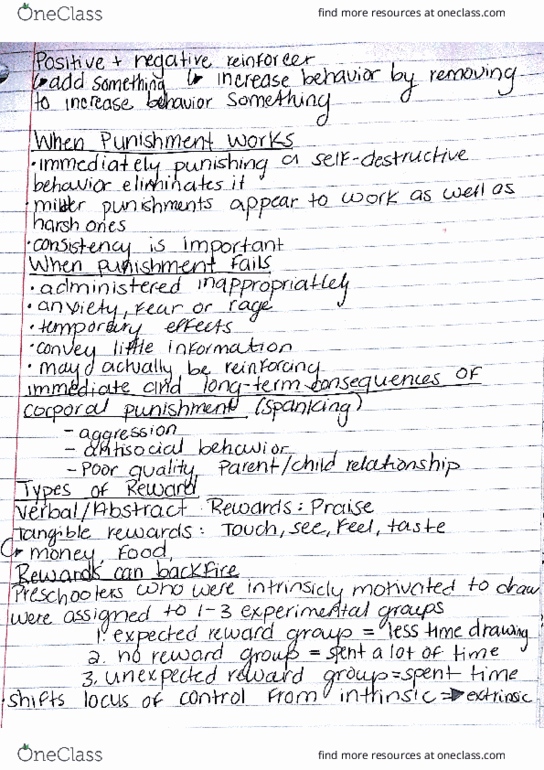 OneClass
find more resources at oneclass.com
Positive + negative reinforcer
↳ add something ↳ increase behavior by removing
to increase behavior something
When Punishment Works
• immediately punishing a self-destructive
behavior eliminates it
• milder punishments appear to work as well as
harsh ones
• consistency is important
When punishment Fails
• administered inappropriatley
• anxiety, fear or rage
• temporary effects
• convey little information
• may actually be reinforcing
immediate and long-term consequences of
corporal punishment (spanking)
- aggression
- antisocial behavior
- Poor quality Parent/child relationship
Types of Reward
Verbal/Abstract Rewards: Praise
Tangible rewards: Touch, see, Feel, taste
↳ money Food,
Rewards can backfire
Preschoolers who were intrinsicly motivated to draw
were assigned to 1-3 experimental groups
1. expected reward group = less time drawing
2. no reward group = spent a lot of time
3. unexpected reward group = spent time
shifts locus of control from intrinsic => extrinsic
OneClass
find more resources at oneclass.com